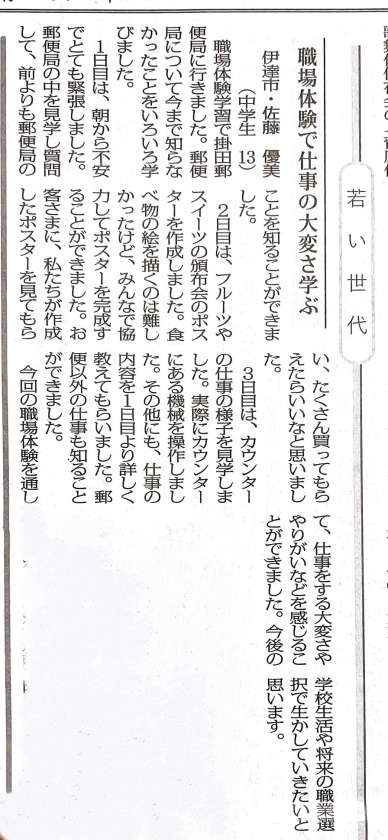 若い世代
職場体験で仕事の大変さ学ぶ
伊達市・佐藤　優美
（中学生　13）
　職場体験学習で掛田郵
便局に行きました。郵便
局について今まで知らな
かったことをいろいろ学
びました。
　1日目は、朝から不安
でとても緊張しました。
郵便局の中を見学し質問
して、前よりも郵便局の
ことを知ることができま
した。
　2日目は、フルーツや
スイーツの頒布会のポス
ターを作成しました。食
べ物の絵を描くのは難し
かったけど、みんなで協
力してポスターを完成す
ることができました。お
客さまに、私たちが作成
したポスターを見てもら
い、たくさん買ってもら
えたらいいなと思いまし
た。
　3日目は、カウンター
の仕事の様子を見学しま
した。実際にカウンター
にある機械を操作しまし
た。その他にも、仕事の
内容を1日目より詳しく
教えてもらいました。郵
便以外の仕事も知ること
ができました。
　今回の職場体験を通し
て、仕事をする大変さや
やりがいなどを感じるこ
とができました。今後の
学校生活や将来の職業選
択で生かしていきたいと
思います。